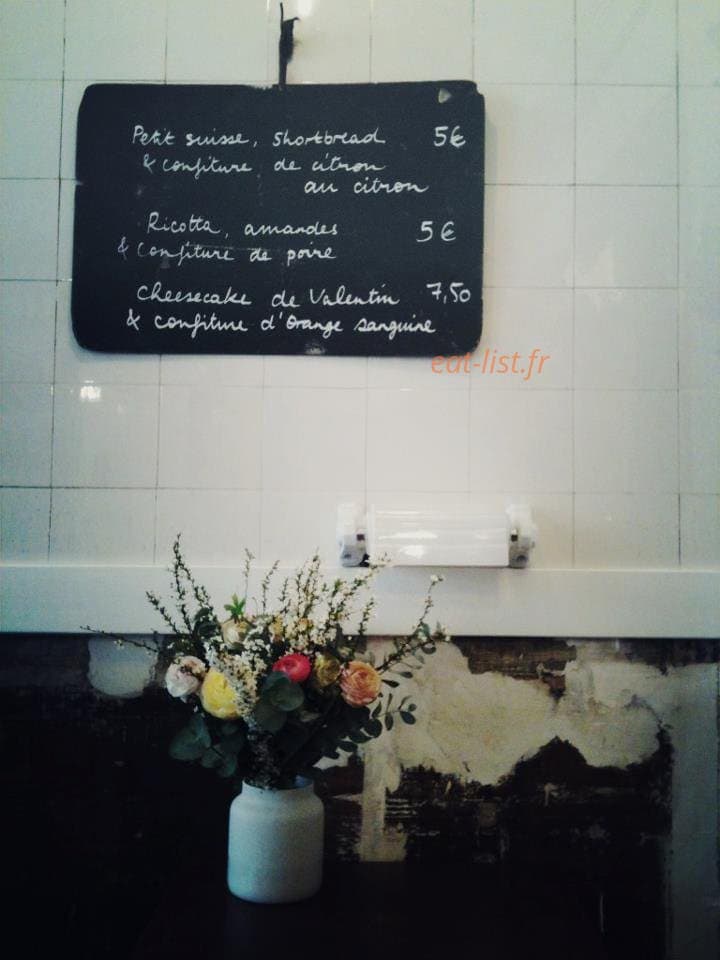 Petit suisse, shortbread 5€
& confiture de citron
au citron
Ricotta, amandes 5€
& confiture de poire
Cheesecake de Valentin 7,50
& confiture d'Orange sanguine
eat-list.fr